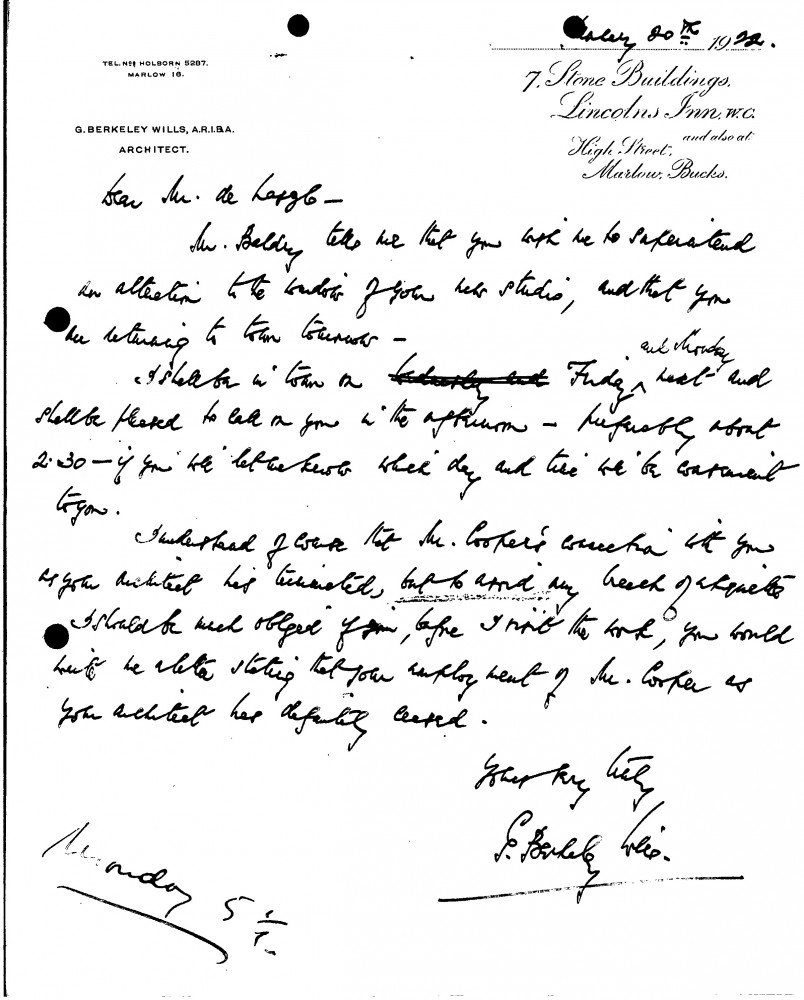 20th 1922.
TEL. Nos HOLBORN 5287.
MARLOW 16.
7, Stone Buildings,
Lincolns Inn, W.C.
and also at
High Street,
Marlow, Bucks.
G. BERKELEY WILLS, A.R.I.B.A.
ARCHITECT.
Dear Mr. de Laszlo —
Mr. Baldry tells me that you wish me to superintend
an alteration to the window of your new studio, and that you
are returning to town tomorrow —
and Monday
I shall be in town on Friday next and
shall be pleased to call on you in the afternoon — preferably about
2.30 — if you will let me know which day and time will be convenient
to you.
I understand of course that Mr. Cooper's connection with you
as your architect has terminated, but to avoid any breach of etiquette
I should be much obliged if you, before I visit the work, you would
write me a letter stating that your employment of Mr. Cooper as
your architect has definitely ceased.
Yours very truly
G. Berkeley Wills.
Monday 5